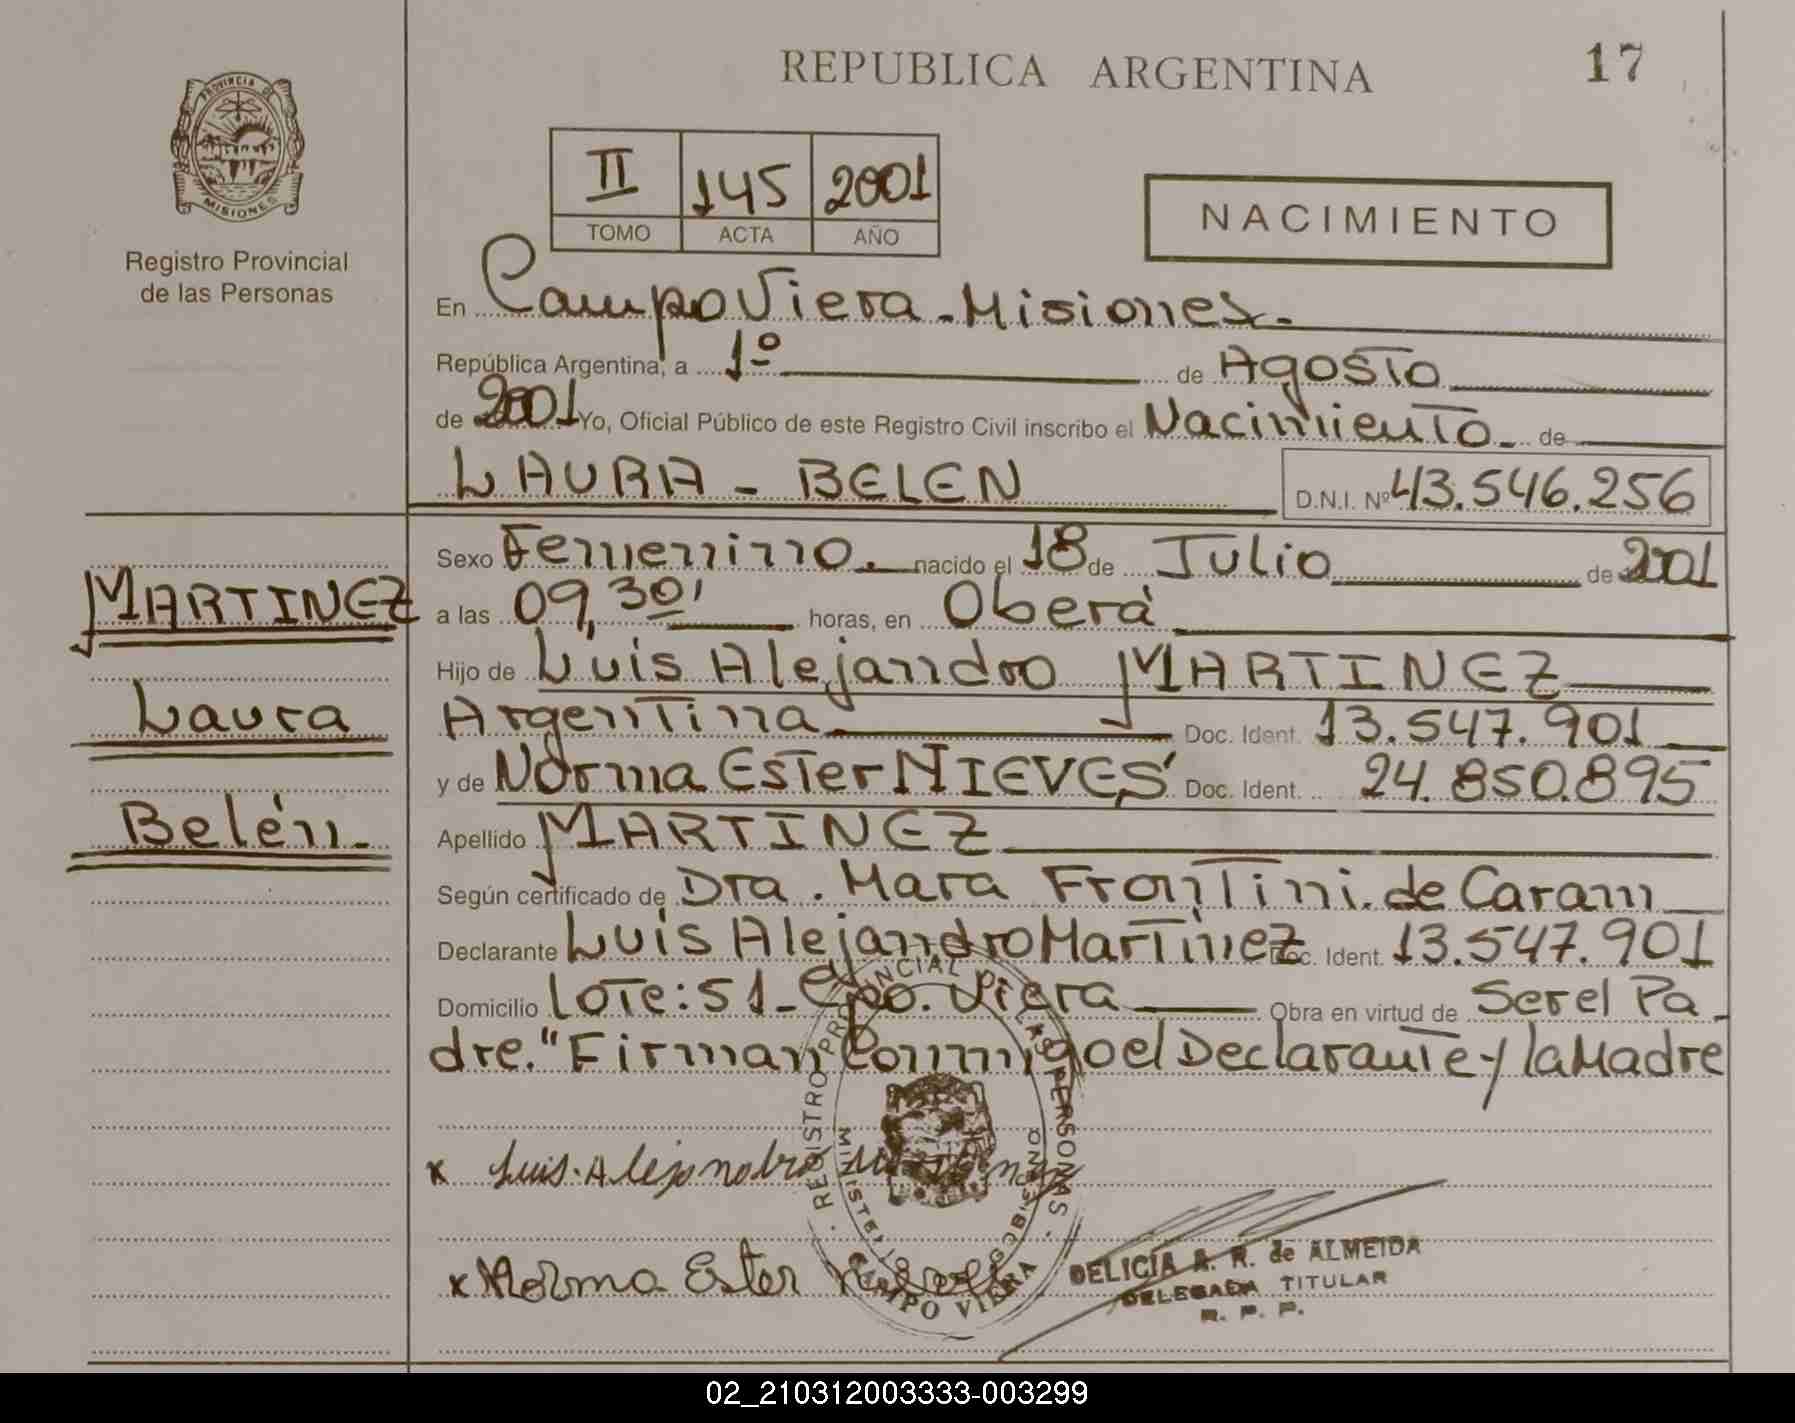 REPUBLICA ARGENTINA
17
PROVINCIA DE
MISIONES
Registro Provincial
de las Personas
II 145 2001
TOMO ACTA AÑO
NACIMIENTO
En Campo Viera - Misiones -
República Argentina, a 1º de Agosto
de 2001 Yo, Oficial Público de este Registro Civil inscribo el Nacimiento - de
LAURA - BELEN D.N.I. Nº 43.546.256
Sexo Femenino. nacido el 18 de Julio de 2001
MARTINEZ
a las 09,30' horas, en Oberá
Hijo de Luis Alejandro MARTINEZ
Laura
Argentina Doc. Ident. 13.547.901
y de Norma Ester NIEVES Doc. Ident. 24.850.895
Belén -
Apellido MARTINEZ
Según certificado de Dra. Mara Frontini de Caram
Declarante Luis Alejandro Martinez Doc. Ident. 13.547.901
Domicilio Lote: 51 - Cpo. Viera Obra en virtud de Ser el Pa-
dre." Firman Conmigo el Declarante y la Madre
REGISTRO PROVINCIAL DE LAS PERSONAS
CAMPO VIERA
x Luis Alejandro Martinez
x Norma Ester
DELICIA A. R. de ALMEIDA
DELEGADA TITULAR
R. P. P.
02_210312003333-003299